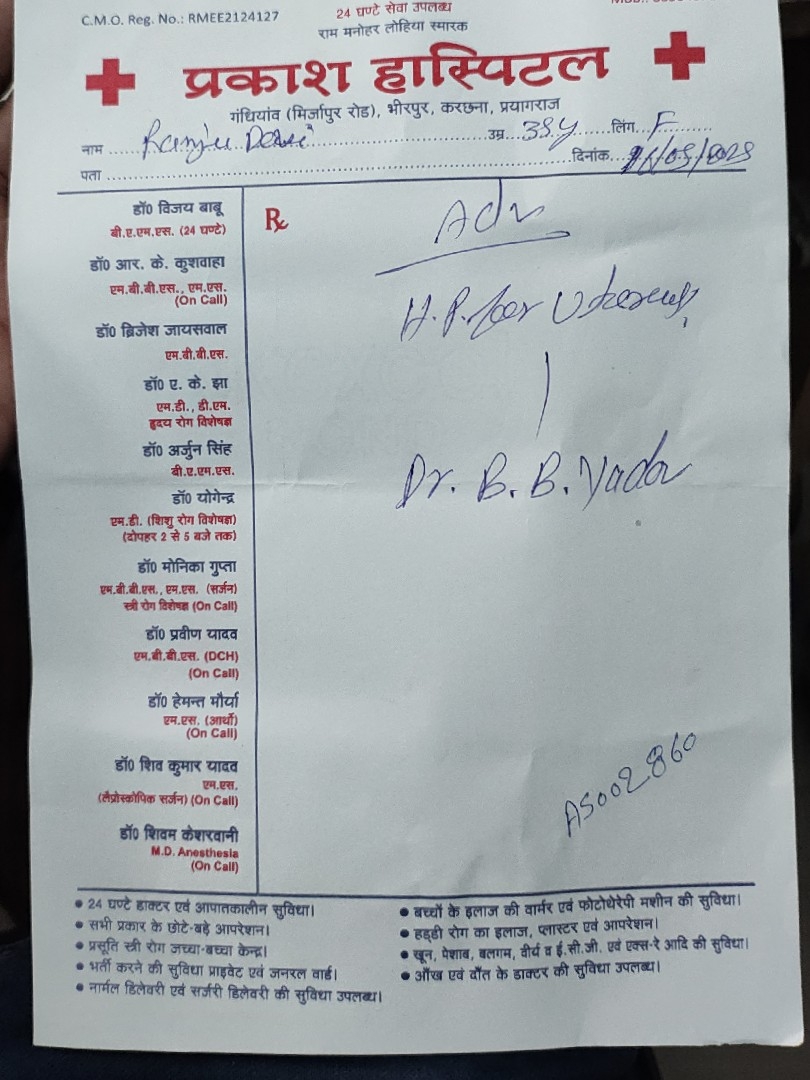 C.M.O. Reg. No.: RMEE2124127
24 घण्टे सेवा उपलब्ध
राम मनोहर लोहिया स्मारक
प्रकाश हास्पिटल
गंधियांव (मिर्जापुर रोड), भीरपुर, करछना, प्रयागराज
नाम Ranju Devi उम्र 38y लिंग F
पता दिनांक
डॉ0 विजय बाबू
बी.ए.एम.एस. (24 घण्टे)
डॉ0 आर. के. कुशवाहा
एम.बी.बी.एस., एम.एस.
(On Call)
डॉ0 ब्रिजेश जायसवाल
एम.बी.बी.एस.
डॉ0 ए. के. झा
एम.डी., डी.एम.
हृदय रोग विशेषज्ञ
डॉ0 अर्जुन सिंह
बी.ए.एम.एस.
डॉ0 योगेन्द्र
एम.डी. (शिशु रोग विशेषज्ञ)
(दोपहर 2 से 5 बजे तक)
डॉ0 मोनिका गुप्ता
एम.बी.बी.एस., एम.एस. (सर्जन)
स्त्री रोग विशेषज्ञ (On Call)
डॉ0 प्रवीण यादव
एम.बी.बी.एस. (DCH)
(On Call)
डॉ0 हेमन्त मौर्या
एम.एस. (आर्थो)
(On Call)
डॉ0 शिव कुमार यादव
एम.एस.
(लैप्रोस्कोपिक सर्जन) (On Call)
डॉ0 शिवम केशरवानी
M.D. Anesthesia
(On Call)
Rx
Adv
H.P. for Uterus
Dr. B. B. Yadav
AS002860
• 24 घण्टे डाक्टर एवं आपातकालीन सुविधा।
• सभी प्रकार के छोटे-बड़े आपरेशन।
• प्रसूति स्त्री रोग जच्चा-बच्चा केन्द्र।
• भर्ती करने की सुविधा प्राइवेट एवं जनरल वार्ड।
• नार्मल डिलेवरी एवं सर्जरी डिलेवरी की सुविधा उपलब्ध।
• बच्चों के इलाज की वार्मर एवं फोटोथेरेपी मशीन की सुविधा।
• हड्डी रोग का इलाज, प्लास्टर एवं आपरेशन।
• खून, पेशाब, बलगम, वीर्य व ई.सी.जी. एवं एक्स-रे आदि की सुविधा।
• आँख एवं दाँत के डाक्टर की सुविधा उपलब्ध।